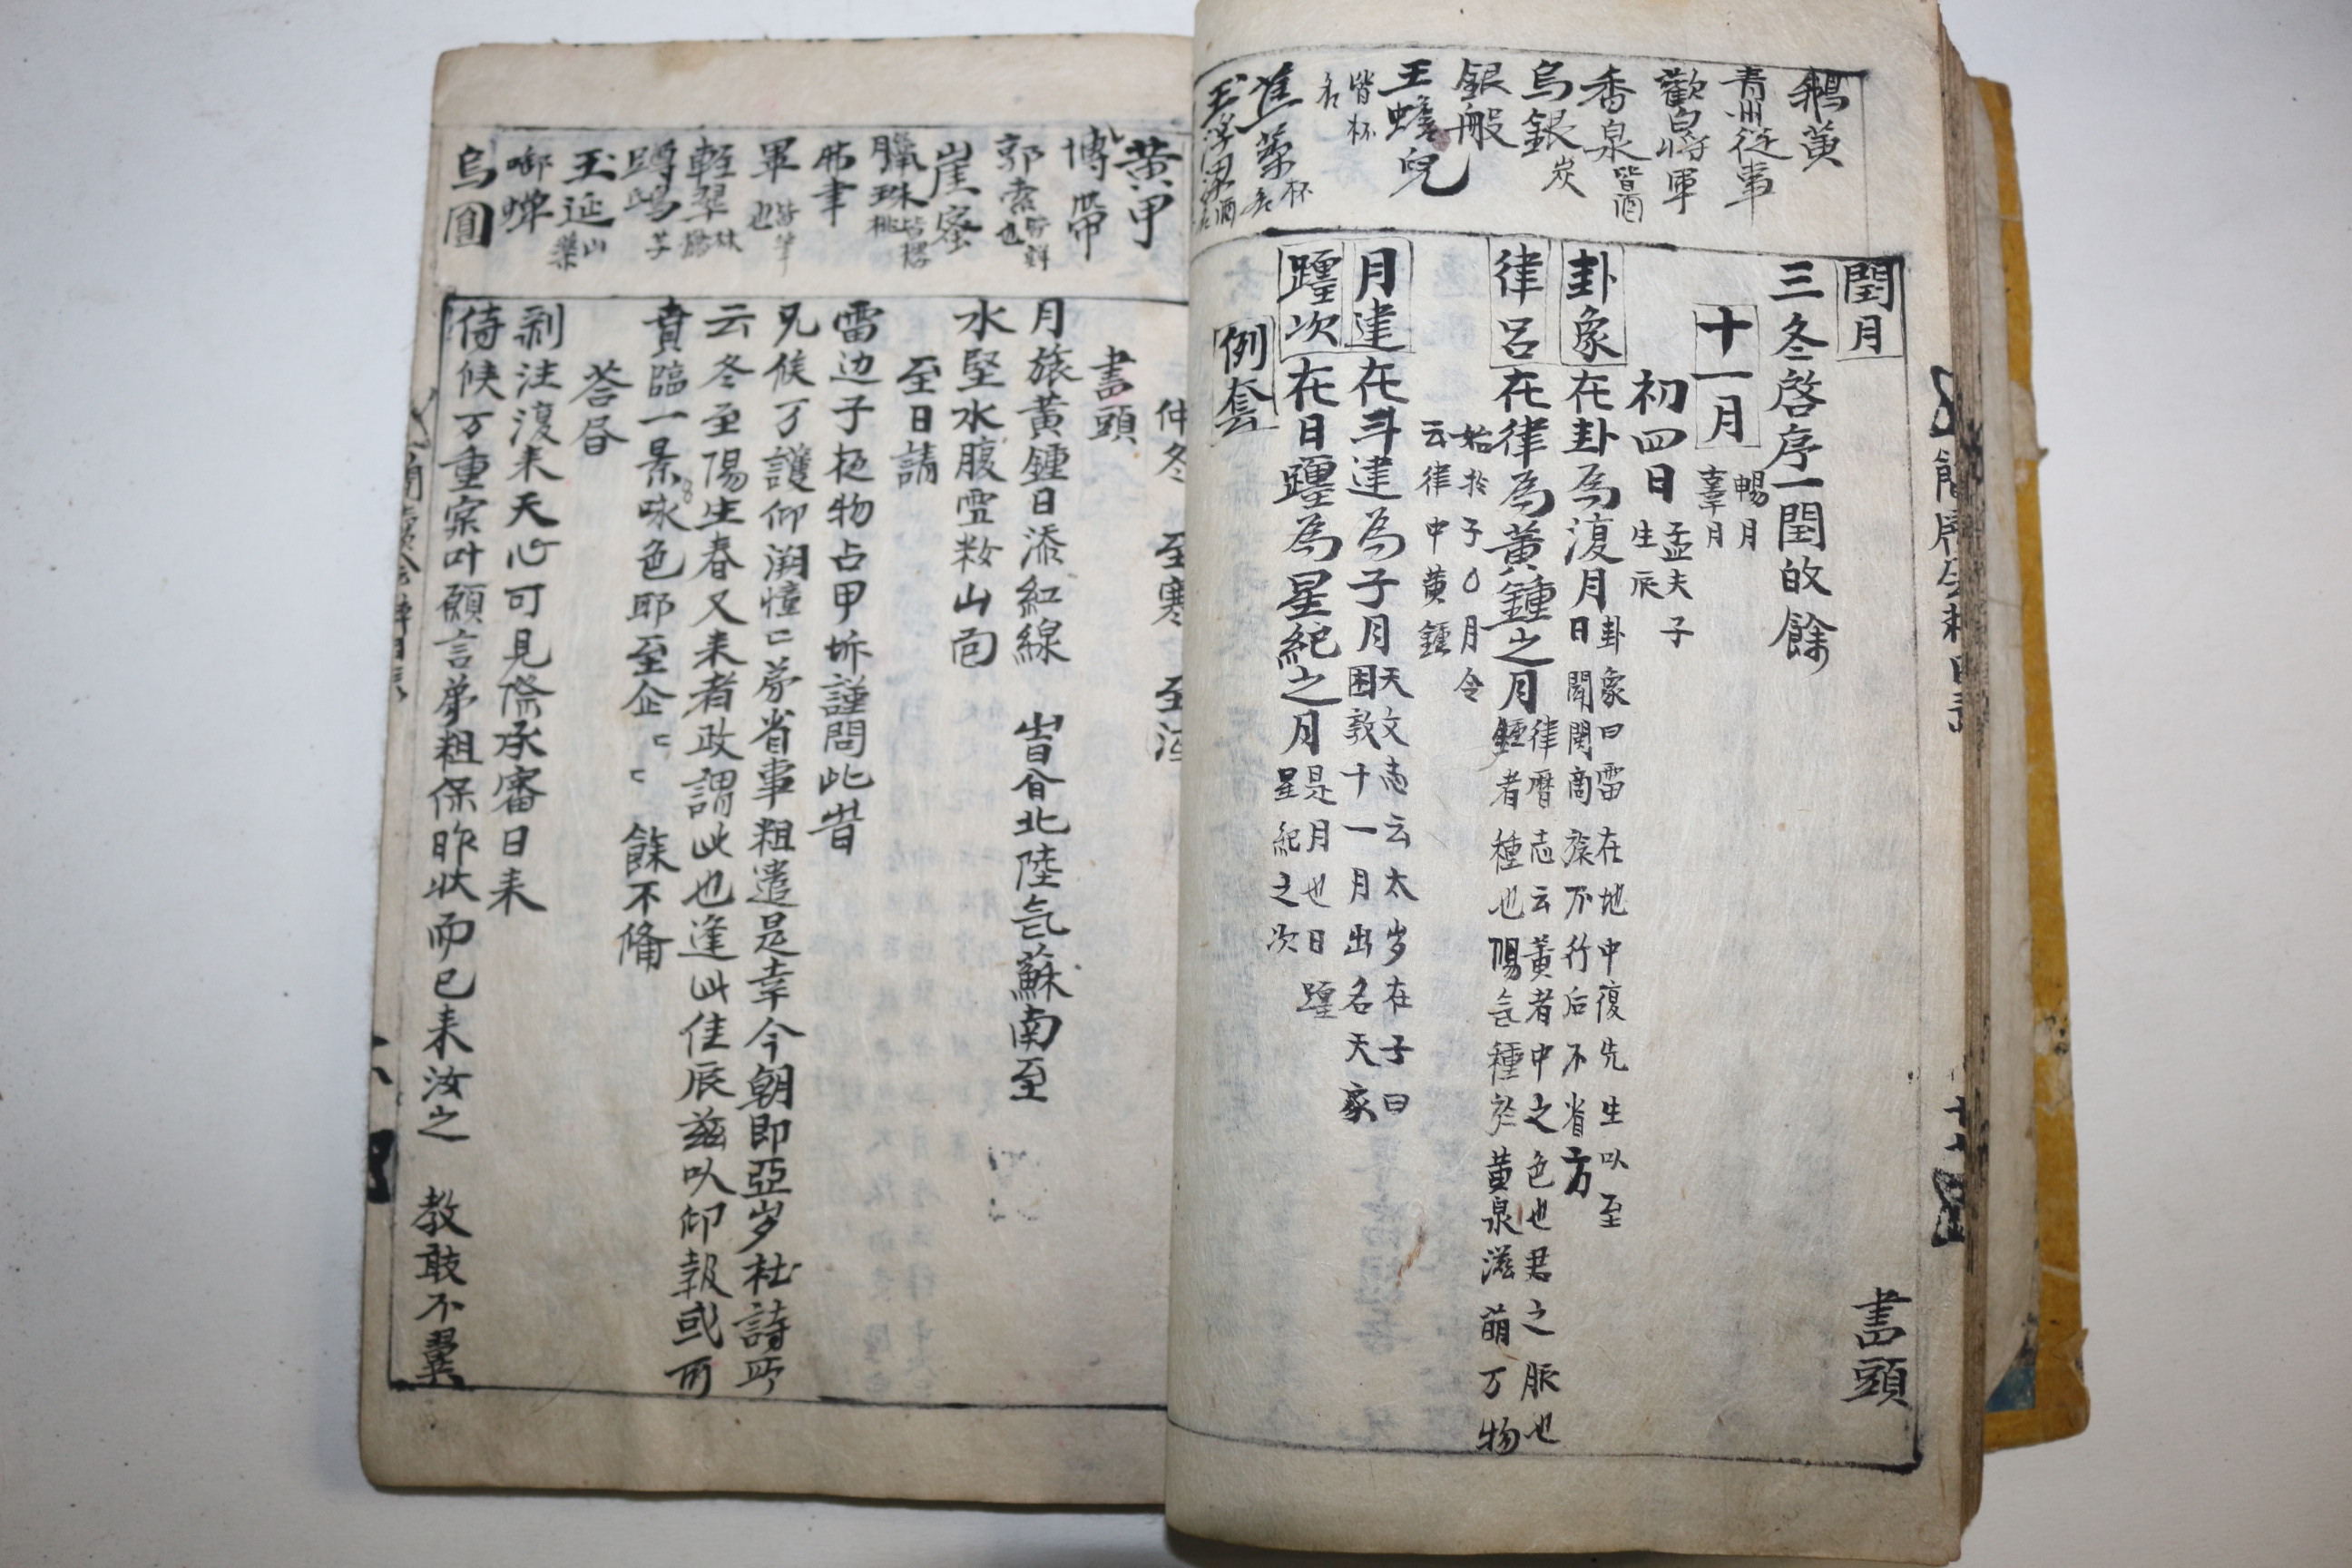 鵝黃
青州從事
歡白將軍
香泉 皆酒
烏銀 炭
銀般
玉蟾兒
皆杯名
蕉葉 杯名
閏月
書頭
三冬啓序一閏攸餘
十一月 暢月 辜月
初四日 孟夫子生辰
卦象 在卦爲復月 卦象曰雷在地中復先生以至
日閉関商旅不行后不省方
律呂 在律爲黃鍾之月 律曆志云黃者中之色也君之脈也
鍾者種也陽气種於黃泉滋萌万物
始於子○月令
云律中黃鍾
月建 在斗建爲子月 天文志云太岁在子曰
困敦十一月出名天家
躔次 在日躔爲星紀之月 是月也日躔
星紀之次
例套
黃甲
博帶
郭索 皆蟹也
崖蜜
臘珠 皆櫻桃
弗聿
軍 皆筆也
輕翠
蹲鴟 芋
玉延 山藥
啣蟬
烏圓
仲冬 至寒
書頭
月旅黃鍾日添紅線 岧旮北陸气蘇南至
水堅水腹雪粧山囪
至日請
雷边子挺物占甲坼謹問此岧
兄候万護仰溯憧〻弟省事粗遣是幸今朝即亞岁杜詩所
云冬至陽生春又来者政謂此也逢此佳辰兹以仰報或可
賁臨一景咏色耶至企〻〻 餘不備
荅屠
剥泣復来天心可見際承審日来
侍候万重寀叶願言弟粗保昨状而已来汝之 教敢不翼